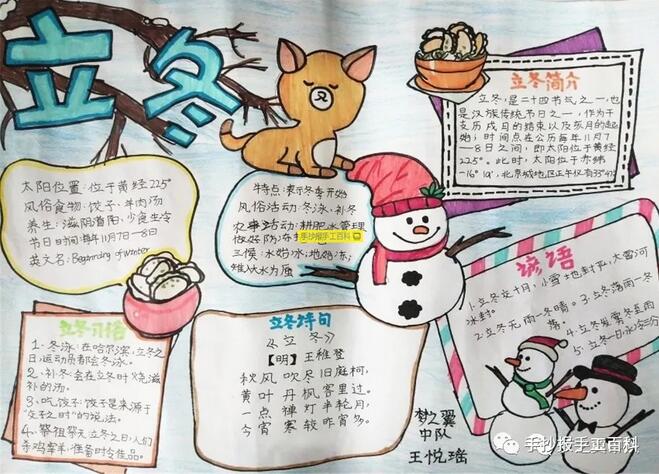 立冬
太阳位置:位于黄经225°
风俗食物:饺子、羊肉汤
养生:滋阴潜阳,少食生冷
节日时间:每年11月7日—8日
英文名:Beginning of winter
特点:表示冬季开始
风俗活动:冬泳、补冬
农事活动:耕肥水管理
做好防冻
三候:水始冰;地始冻;
雉入大水为蜃
手抄报手工百科
立冬简介
立冬,是二十四节气之一,也
是汉族传统节日之一,作为干
支历戌月的结束以及亥月的起
始;时间点在公历每年11月7
—8日之间,即太阳位于黄经
225°。此时,太阳位于赤纬
-16°19',北京城地区正午仅有33°47'
谚语
1.立冬交十月,小雪地封严,大雪河
冰封。
3.立冬落雨一冬
落。
2.立冬无雨一冬晴。
4.立冬发雾冬至雨
5.立冬一日,水冷三分
立冬习俗
1.冬泳:在哈尔滨,立冬之
日,运动员都会冬泳。
2.补冬:会在立冬时烧滋
补的汤。
3.吃饺子:饺子是来源于
"交子之时"的说法。
4.祭祖祭天:立冬之日,人们
杀鸡宰羊,准备时令佳品。
立冬诗句
《立冬》
【明】王稚登
秋风吹尽旧庭柯,
黄叶丹枫客里过。
一点禅灯半轮月,
今宵寒较昨宵多。
梦之翼
中队
王悦瑶
手抄报手工百科